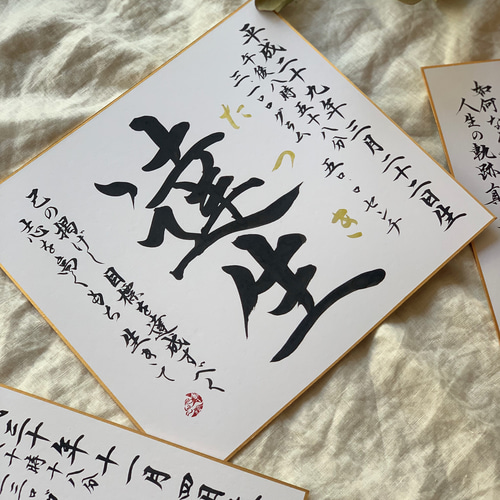 平成二十九年三月二十二日生
午後八時五十八分 五〇.〇センチ
三一一〇グラム
たつき
達生
己の掲げし目標を達成すべく
志を高くもち生きて
如何な
人生の軌跡
三十年十一月四
十時十八分